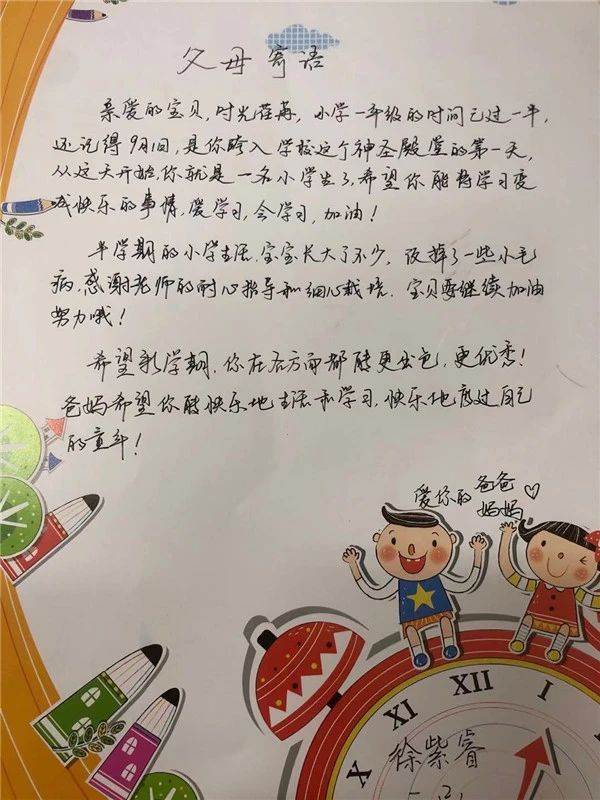 父母寄语
亲爱的宝贝，时光荏苒，小学一年级的时间已过一半，
还记得9月1日，是你跨入学校这个神圣殿堂的第一天，
从这天开始，你就是一名小学生了，希望你能将学习变
成快乐的事情，爱学习，会学习，加油！
半学期的小学生活，宝宝长大了不少，改掉了一些小毛
病，感谢老师的耐心指导和细心栽培，宝贝要继续加油
努力哦！
希望新学期，你在各方面都能更出色，更优秀！
爸妈希望你能快乐地生活和学习，快乐地度过自己
的童年！
爱你的爸爸
妈妈
XI XII I
X
徐紫睿